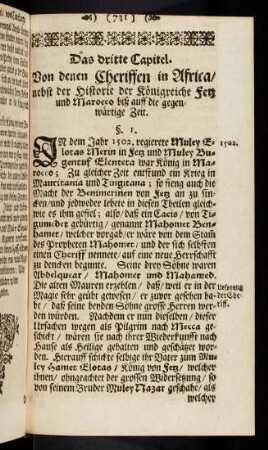 (731)
Das dritte Capitel.
Von denen Cheriffen in Africa/
nebst der Historie der Königreiche Fetz
und Marocco biß auff die gegen-
wärtige Zeit.
§. 1.
IN dem Jahr 1502. regierete Muley E- 1502.
lotas Merin in Fetz und Muley Bu-
gentruf Elenteta war König in Ma-
rocco; Zu gleicher Zeit entstund ein Krieg in
Mauritania und Tingitana; so fieng auch die
Macht der Benimerinen von Fetz an zu sin-
cken/ und jedweder lebete in diesen Theilen gleich
wie es ihm gefiel; also/ daß ein Cacis/ von Ti-
gum-der gebürtig/ genannt Mahomet Ben-
hamet/ welcher vorgab/ er wäre von dem Stam̃
des Propheten Mahomet/ und der sich selbsten
einen Cheriff nennete/ auf eine neue Herrschafft
zu dencken begunte. Seine drey Söhne waren
Abdelquar/ Mahomet und Mahamed.
Die alten Mauren erzehlen/ daß/ weil er in der Ursprung
Magie sehr geübt gewesen/ er zuvor gesehen ha- der Che-
be/ daß seine beyden Söhne grosse Herren wer- riff.
den würden. Nachdem er nun dieselben/ dieser
Ursachen wegen als Pilgrim nach Mecca ge-
schickt/ wären sie nach ihrer Wiederkunfft nach
Hause als Heilige gehalten und geschätzet wor-
den. Hierauff schickte selbige ihr Vater zum Mu-
ley Hamet Elotas/ König von Fetz/ welcher
ihnen/ ohngeachtet der grossen Widersetzung/ so
von seinem Bruder Muley Nazar geschahe/ als
welcher